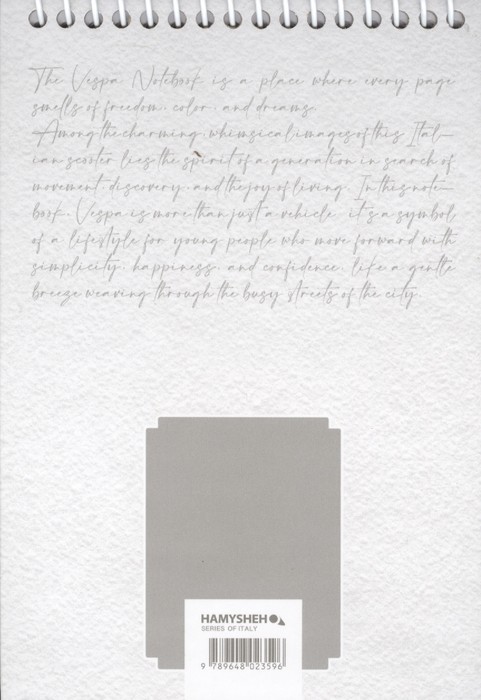 The Vespa Notebook is a place where every page
smells of freedom, color, and dreams.
Among the charming, whimsical images of this Ital-
ian scooter lies the spirit of a generation in search of
movement, discovery, and the joy of living. In this note-
book, Vespa is more than just a vehicle it's a symbol
of a lifestyle for young people who move forward with
simplicity, happiness, and confidence, like a gentle
breeze weaving through the busy streets of the city.
HAMYSHEH
SERIES OF ITALY
9 789648 023596